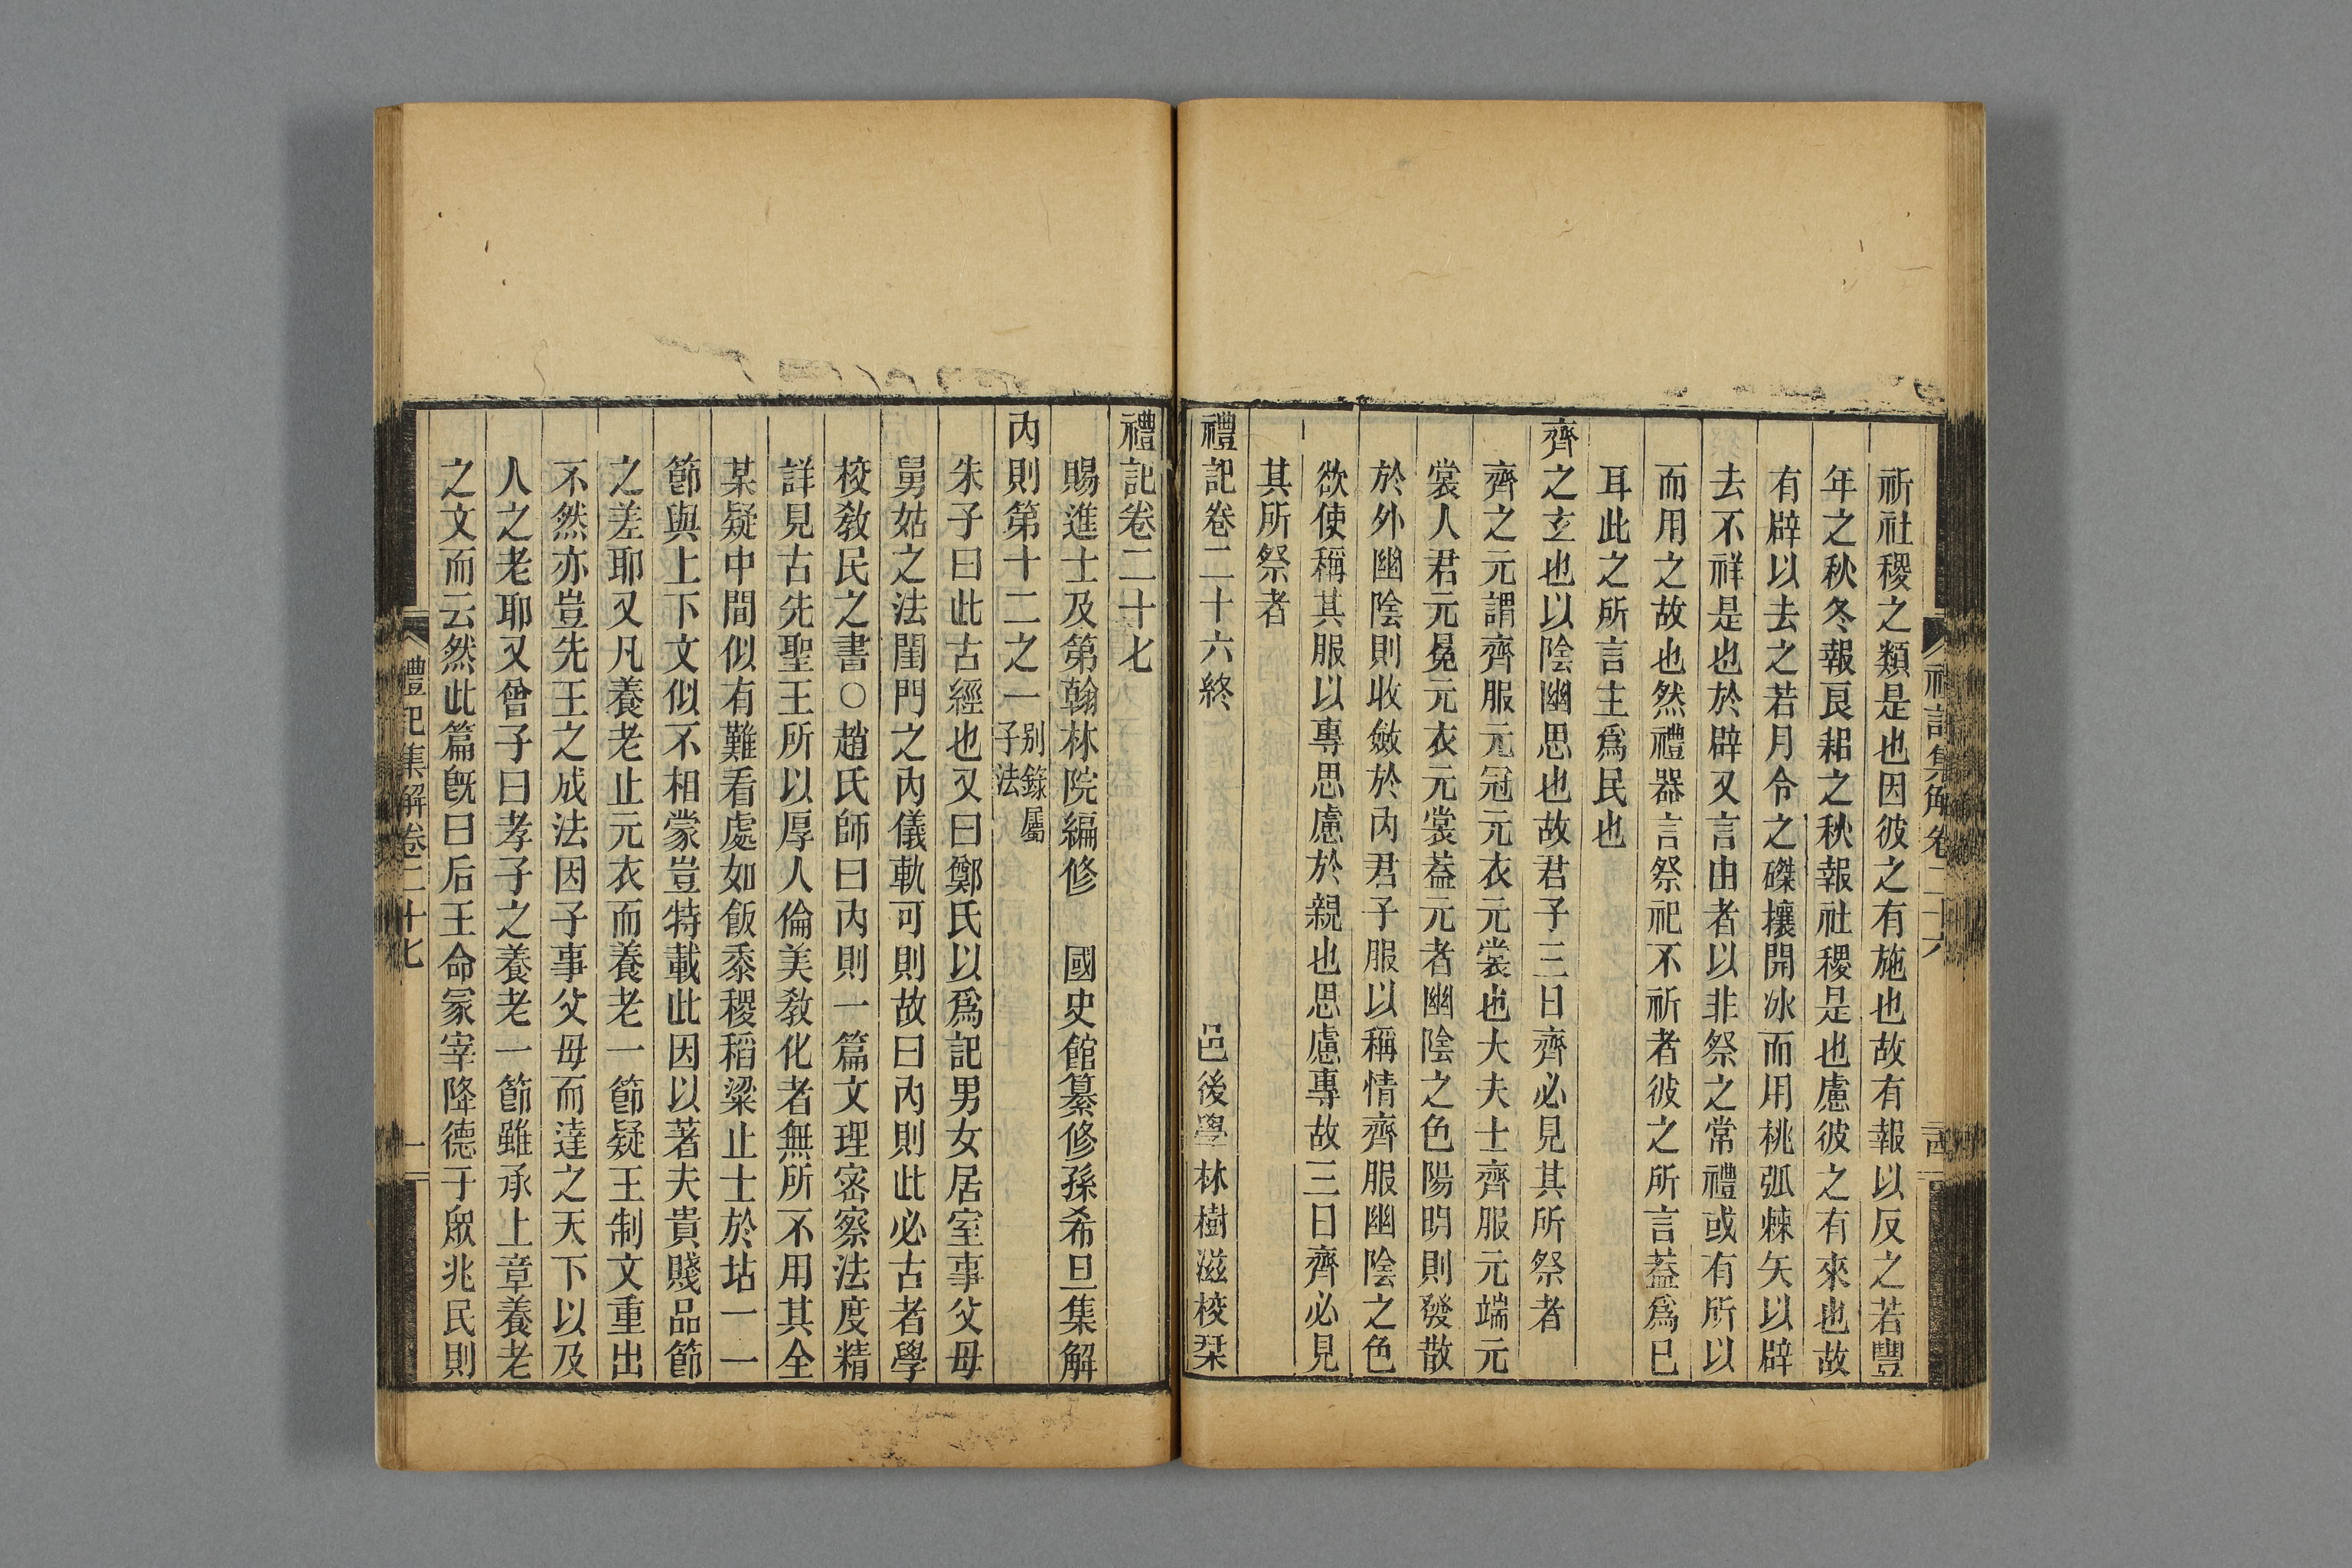 祈社稷之類是也因彼之有施也故有報以反之若豐
年之秋冬報良耜之秋報社稷是也慮彼之有來也故
有辟以去之若月令之磔攘開冰而用桃弧棘矢以辟
去不祥是也於辟又言由者以非祭之常禮或有所以
而用之故也然禮器言祭祀不祈者彼之所言葢爲已
耳此之所言主爲民也
齊之玄也以陰幽思也故君子三日齊必見其所祭者
齊之元謂齊服元冠元衣元裳也大夫士齊服元端元
裳人君元冕元衣元裳葢元者幽陰之色陽明則發散
於外幽陰則收斂於內君子服以稱情齊服幽陰之色
欲使稱其服以專思慮於親也思慮專故三日齊必見
其所祭者
禮記卷二十六終 邑後學林樹滋校栞
禮記集解卷二十六
禮記卷二十七
賜進士及第翰林院編修 國史館纂修孫希旦集解
內則第十二之一 别錄屬子法
朱子曰此古經也又曰鄭氏以爲記男女居室事父母
舅姑之法閨門之內儀軌可則故曰內則此必古者學
校敎民之書○趙氏師曰內則一篇文理密察法度精
詳見古先聖王所以厚人倫美敎化者無所不用其全
某疑中間似有難看處如飯黍稷稻粱止士於坫一一
節與上下文似不相蒙豈特載此因以著夫貴賤品節
之差耶又凡養老止元衣而養老一節疑王制文重出
不然亦豈先王之成法因子事父母而達之天下以及
人之老耶又曾子曰孝子之養老一節雖承上章養老
之文而云然此篇旣曰后王命冢宰降德于衆兆民則
禮記集解卷二十七 一